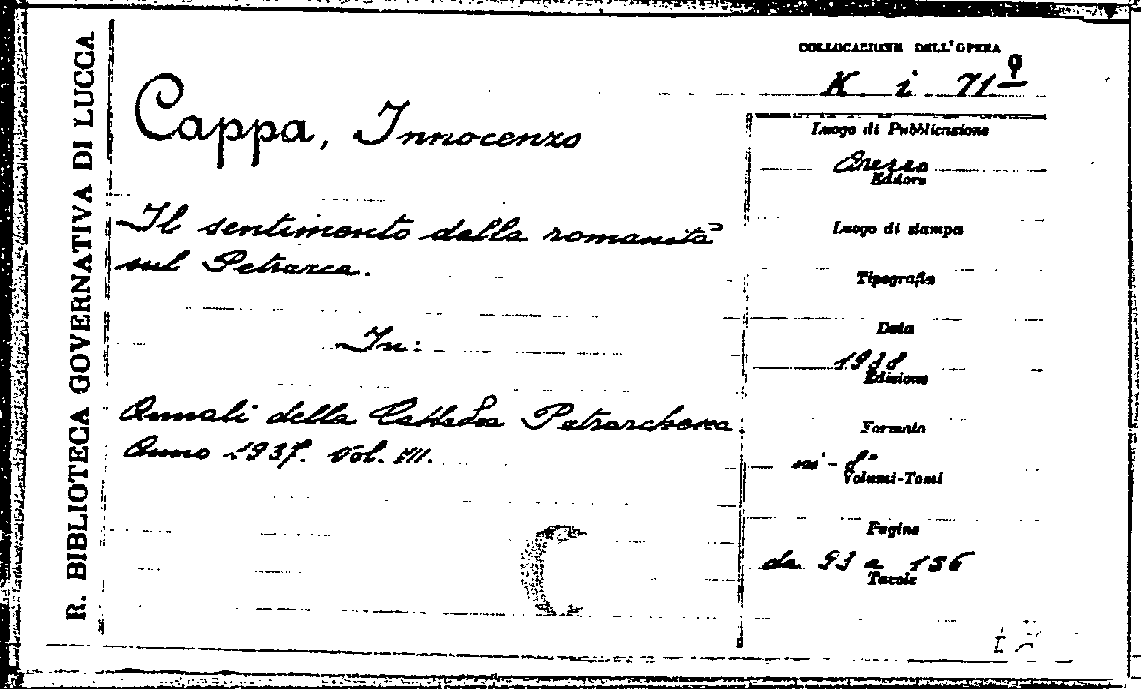 R. BIBLIOTECA GOVERNATIVA DI LUCCA
COLLOCAZIONE DELL'OPERA
K i 71 9
Cappa, Innocenzo
Il sentimento della romanità
sul Petrarca.
In:
Annali della Cattedra Petrarchesca.
Anno 1937. Vol. VII.
Luogo di Pubblicazione
Arezzo
Editore
Luogo di stampa
Tipografia
Data
1938
Edizione
Formato
in-8°
Volumi-Tomi
Pagine
da 93 a 136
Tavole